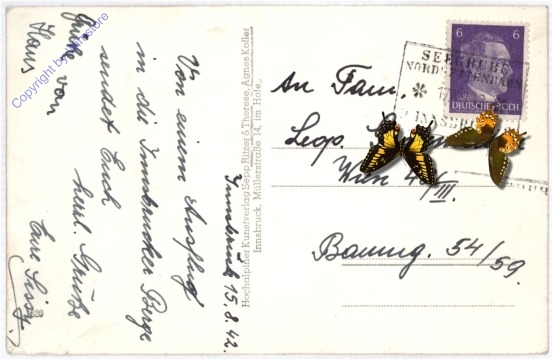 Innsbruck 15.8.42.
Von einem Ausflug
in die Innsbrucker Berge
sendet Euch
herzl. Grüße
Eure Sissy.
Grüße von
Hans
Copyright by
store
Hochalpiner Kunstverlag Sepp Ritzer & Therese, Agnes Kofler
Innsbruck, Müllerstraße 14, im Hofe.
6 6
DEUTSCHES REICH
SEEGRUBE
INNSBR
An Fam.
Leop.
Wien
III.
Baumg. 54/59.